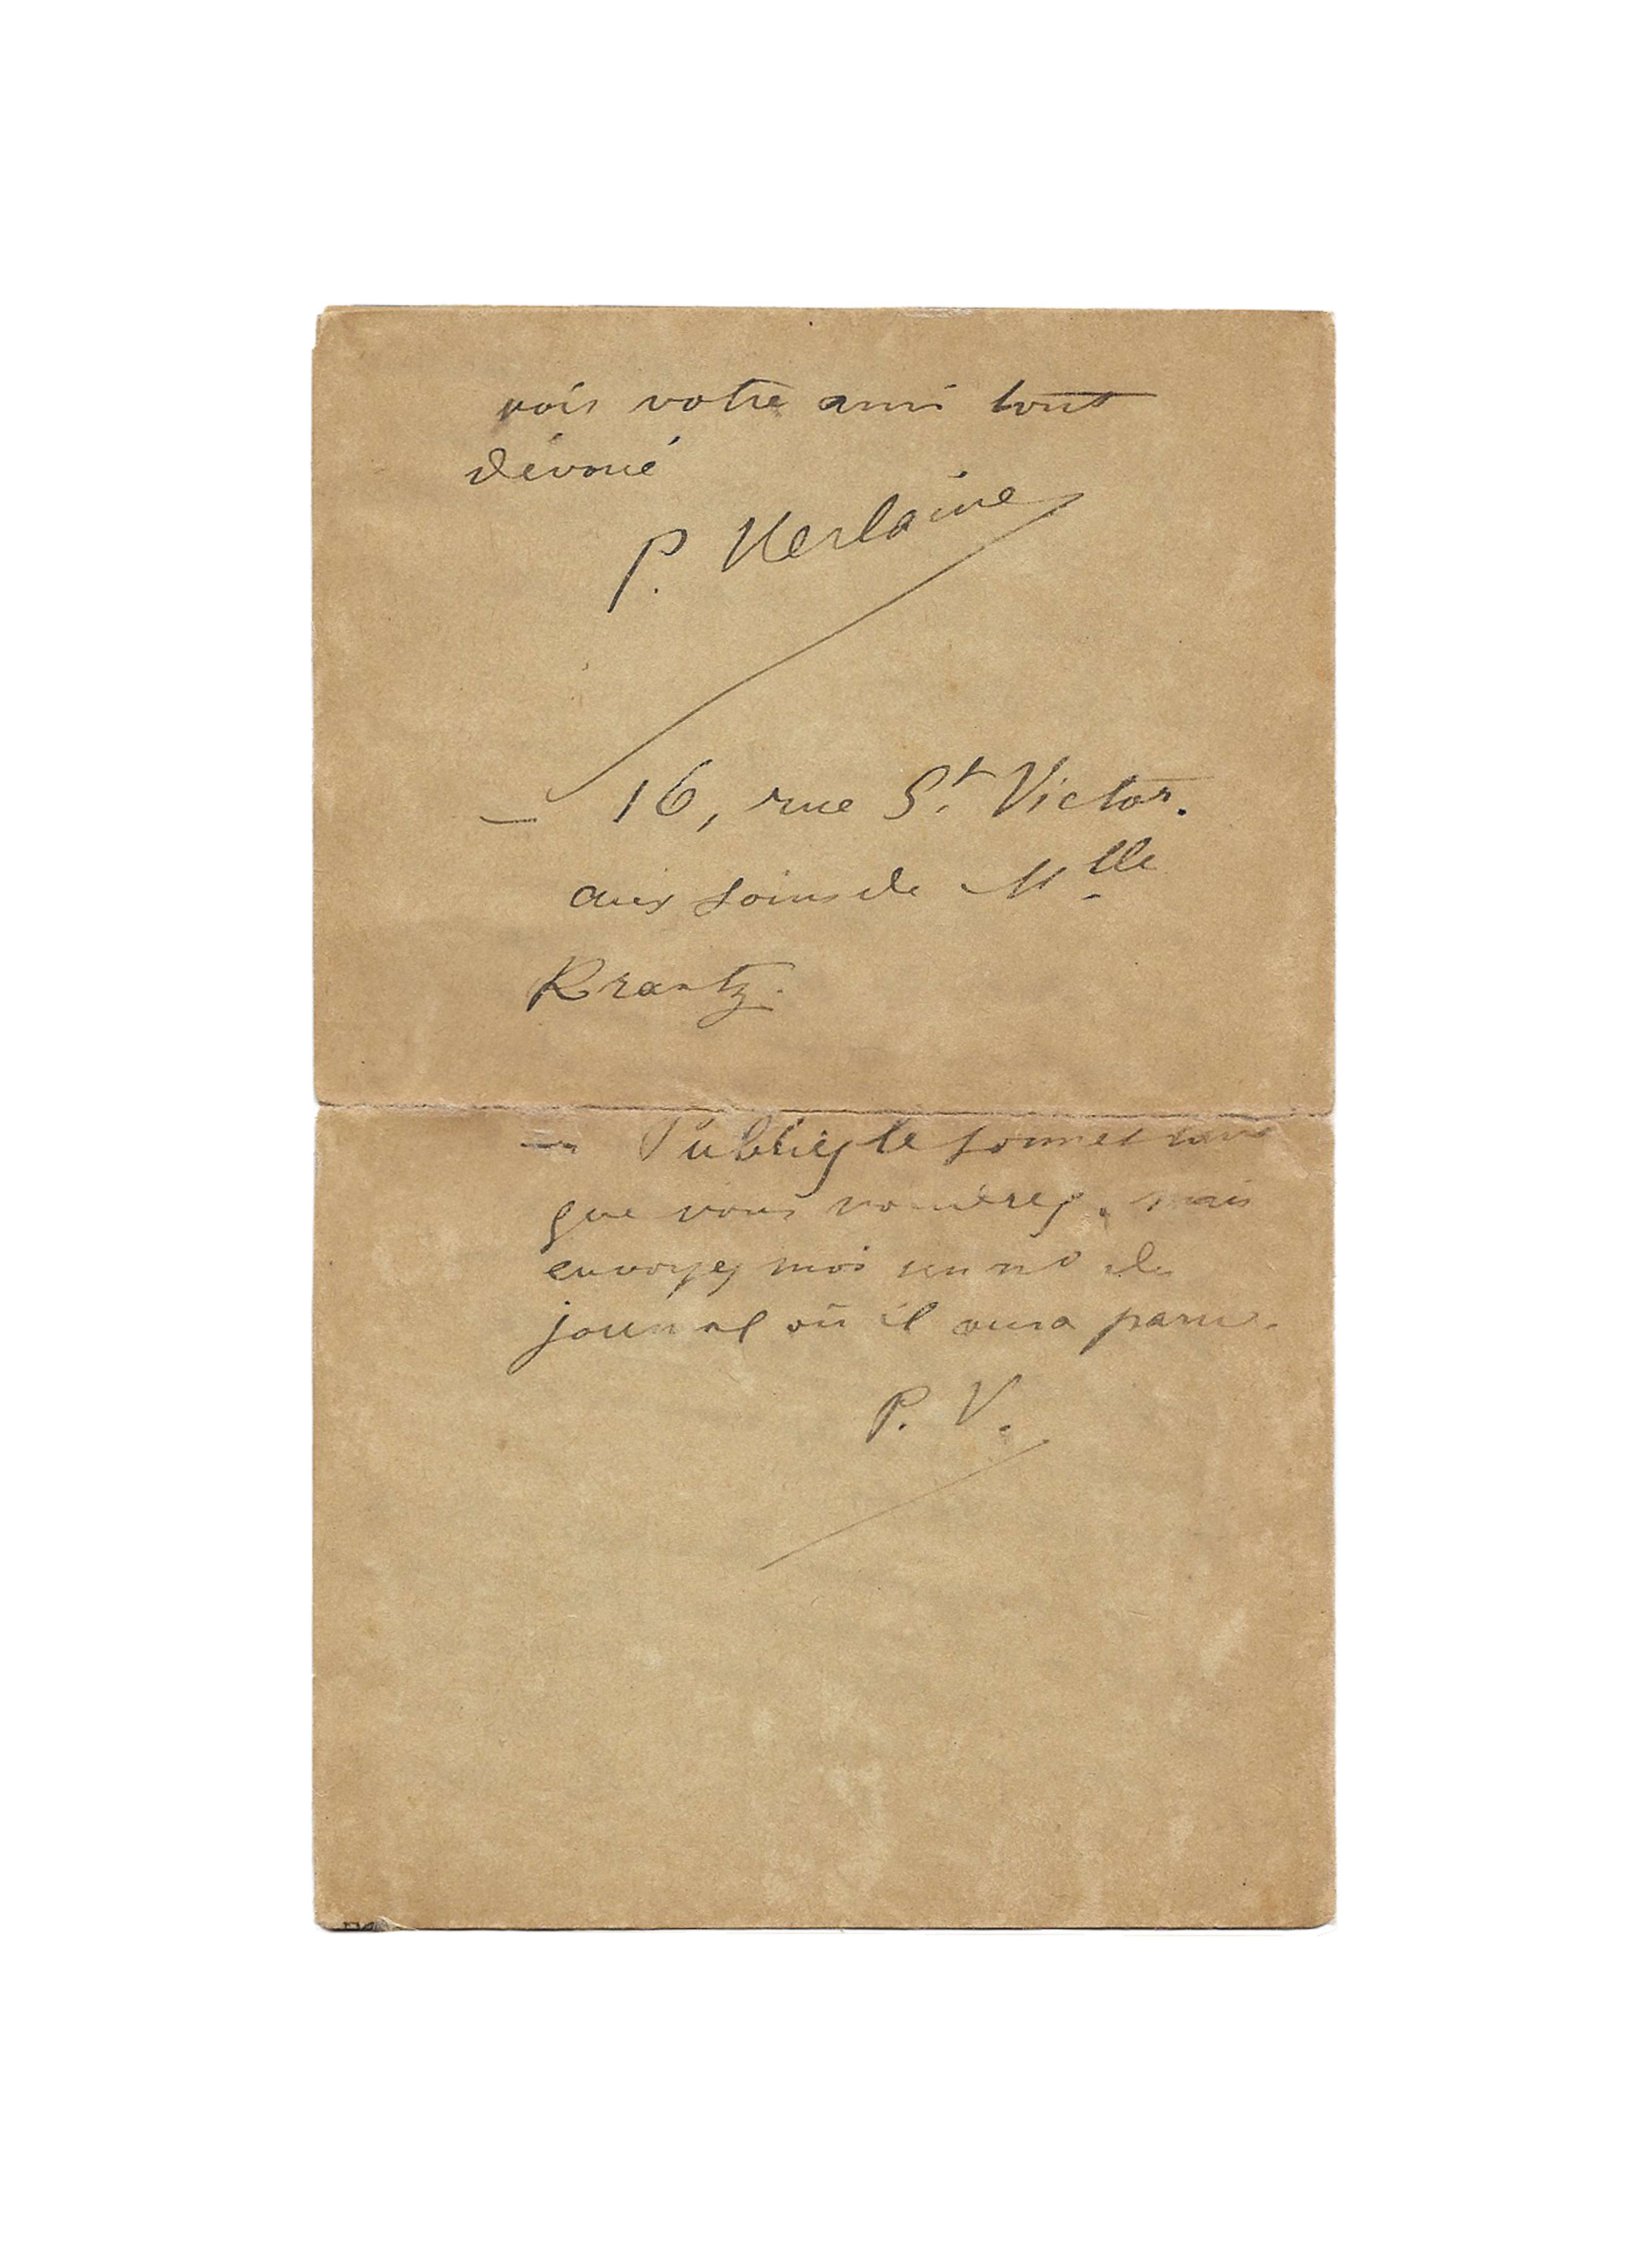 vois votre ami tout
dévoué
P. Verlaine
— 16, rue S.t Victor.
aux soins de Mlle
Krantz.
— Publiez le sonnet
que vous voudrez, mais
envoyez moi un no du
journal où il aura paru.
P. V.